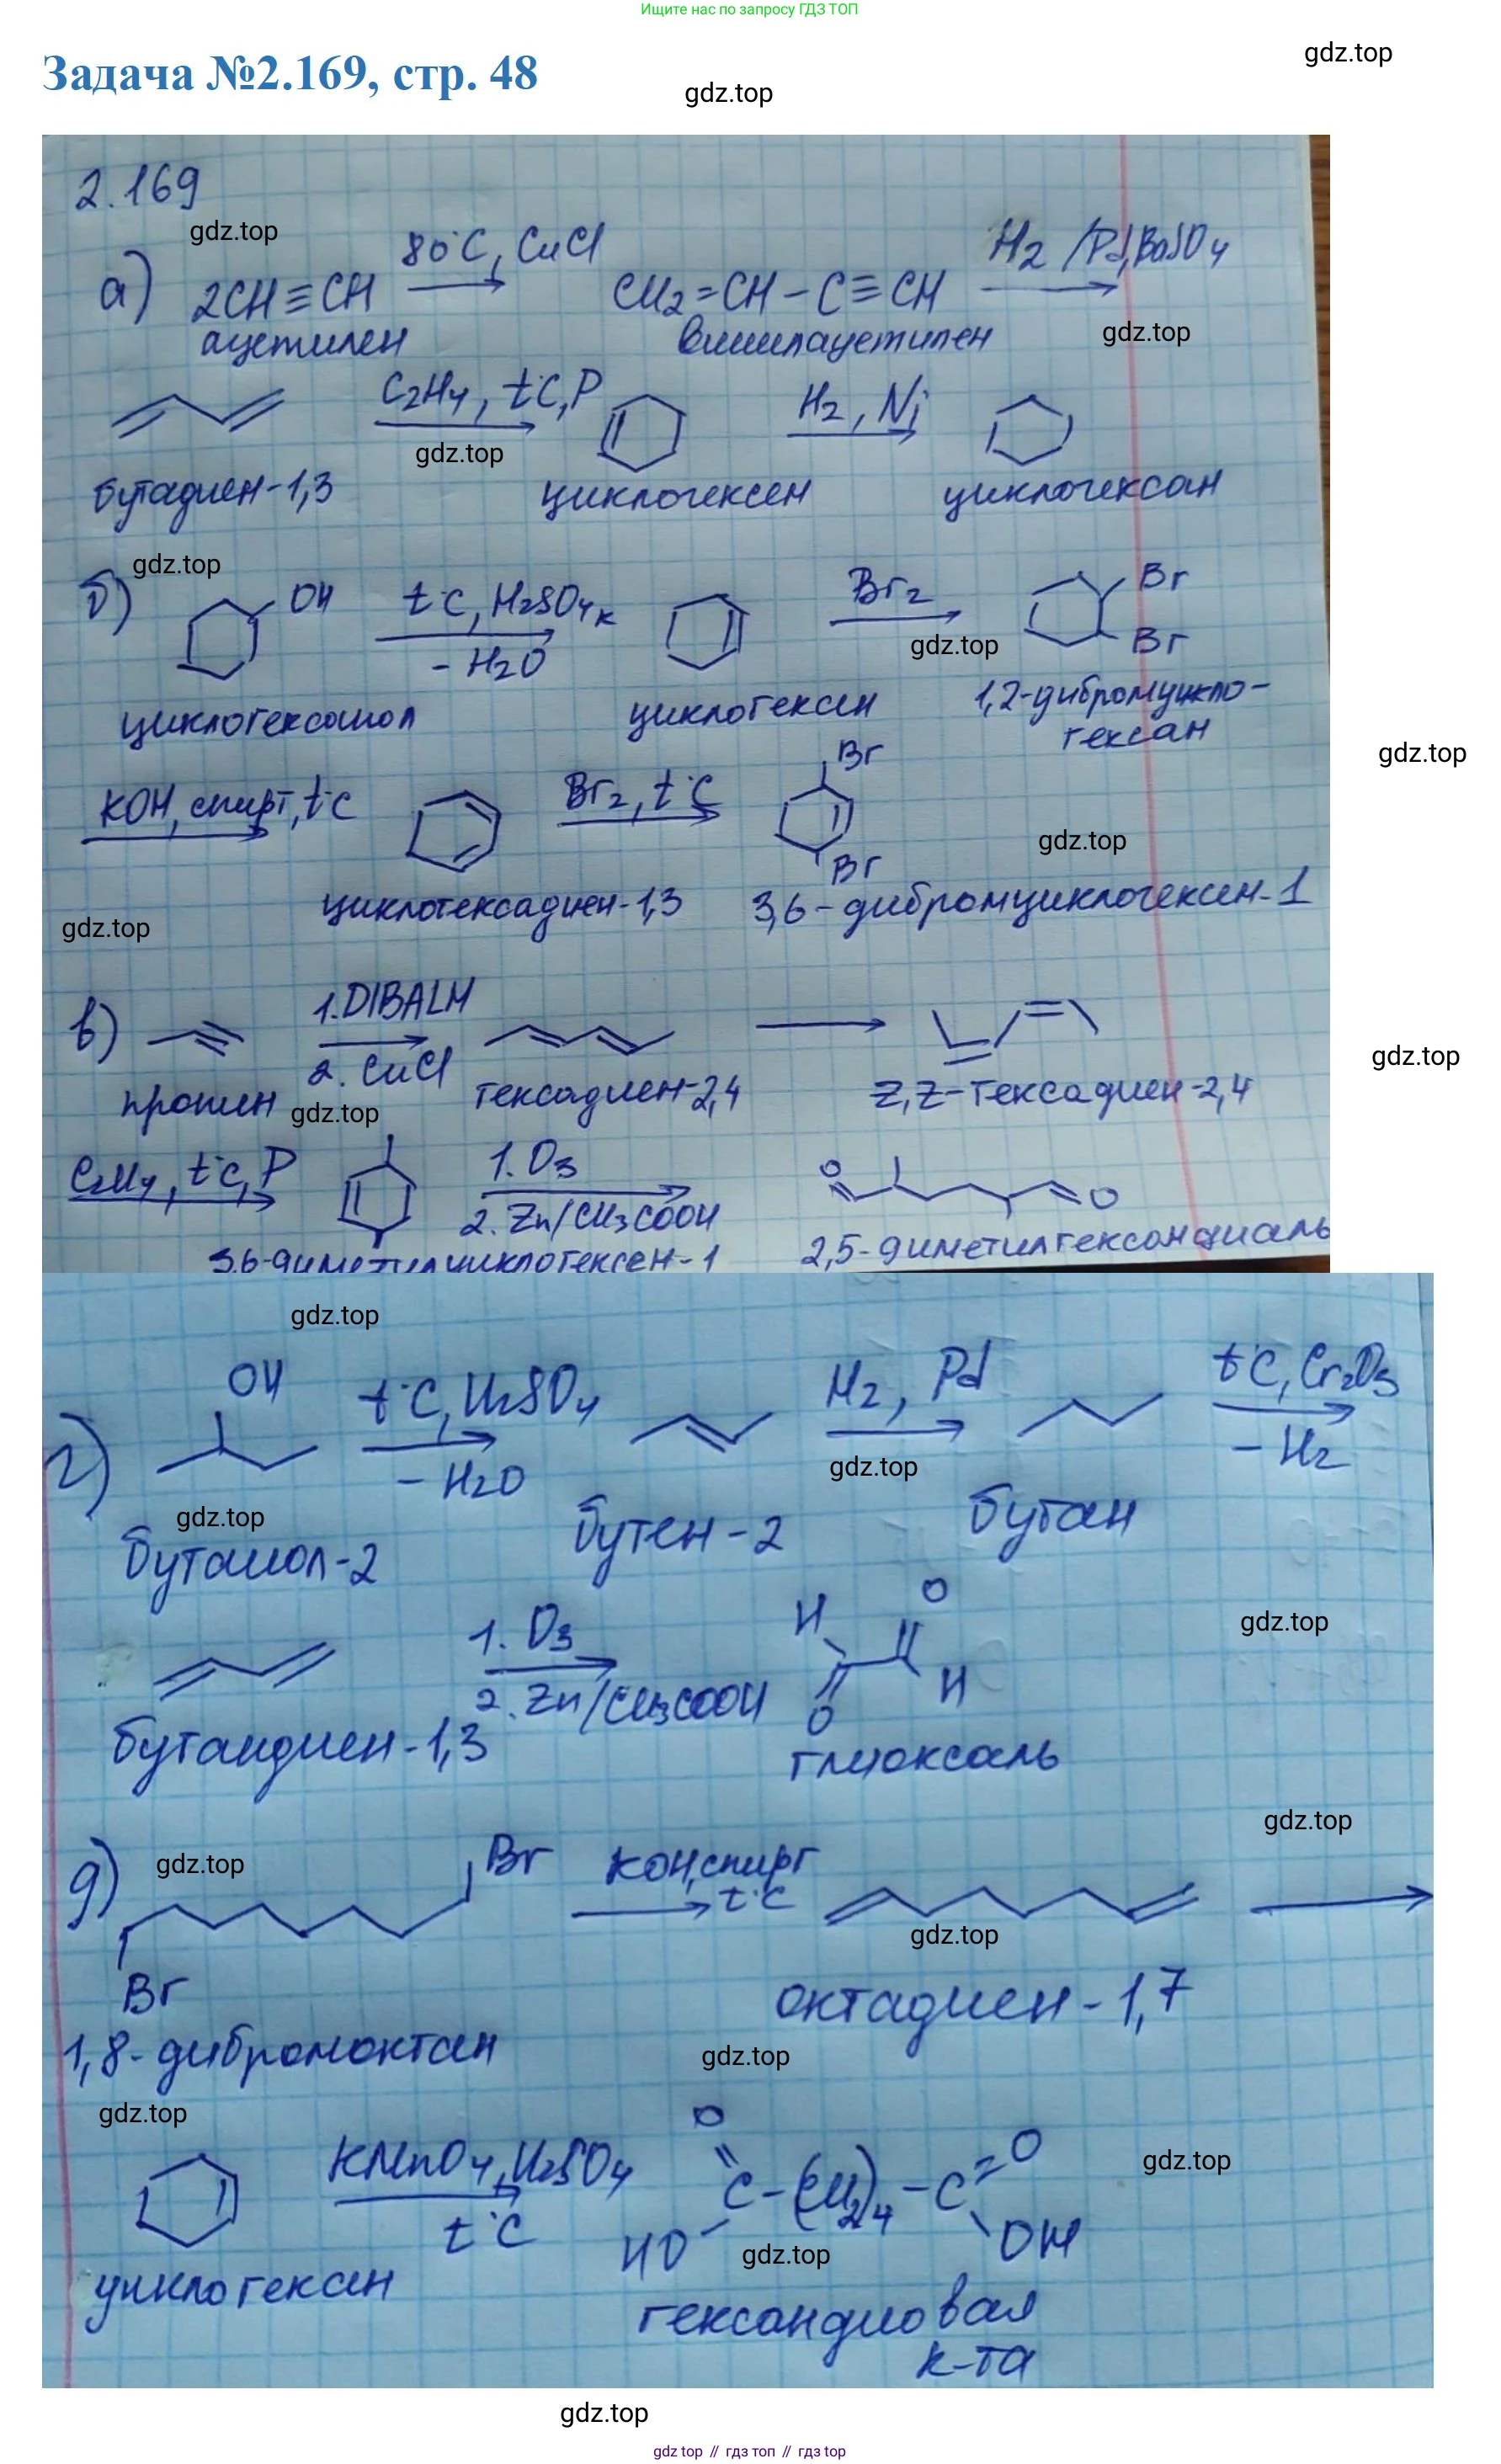 Ищите нас по запросу ГДЗ ТОП
Задача №2.169, стр. 48
gdz.top
gdz.top
2.169
gdz.top
а) 2CH≡CH 80°C, CuCl CH2=CH-C≡CH H2/Pd, BaSO4
ацетилен винилацетилен
gdz.top
C2H4, t°C, P H2, Ni
gdz.top
бутадиен-1,3 циклогексен циклогексан
gdz.top
б) OH t°C, H2SO4к Br2 Br
-H2O gdz.top Br
циклогексанол циклогексен 1,2-дибромцикло-
гексан
gdz.top
KOH, спирт, t°C Br2, t°C Br
gdz.top
Br
циклогексадиен-1,3 3,6-дибромциклогексен-1
gdz.top
в) 1. DIBALH
2. CuCl
gdz.top
пропин gdz.top гексадиен-2,4 Z,Z-гексадиен-2,4
C2H4, t°C, P 1. O3 O O
2. Zn/CH3COOH
3,6-диметилциклогексен-1 2,5-диметилгександиаль
gdz.top
г) OH t°C, H2SO4 H2, Pd t°C, Cr2O3
-H2O gdz.top -H2
gdz.top
бутанол-2 бутен-2 бутан
1. O3 H O
gdz.top
2. Zn/CH3COOH O H
бутандиен-1,3 глиоксаль
gdz.top
д) gdz.top Br KOH, спирт
t°C
gdz.top
Br
1,8-дибромоктан октадиен-1,7
gdz.top
gdz.top
KMnO4, H2SO4 O C-(CH2)4-C=O
t°C HO OH
gdz.top
gdz.top
циклогексен гександиовая
к-та
gdz.top
gdz top // гдз топ // гдз top